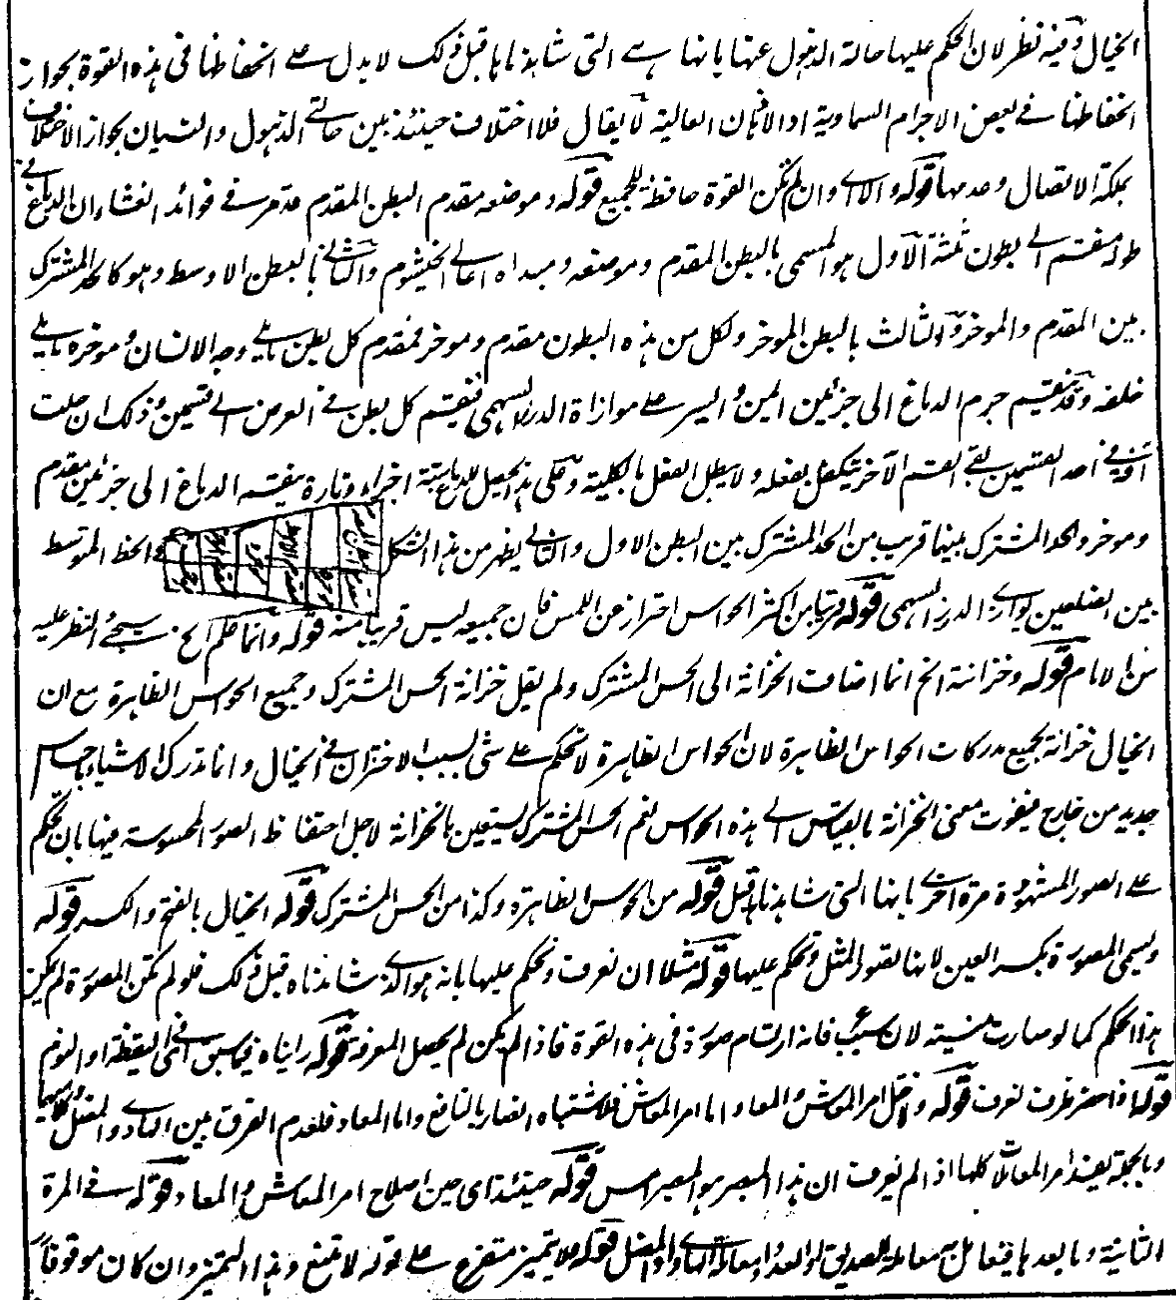 الخيال وفيه نظر لان الحكم عليها حالة الذهول عنها بانها هے التى شاهدناها قبل ذلك لا يدل علے انحفاظها فى هذه القوة بجواز
انحفاظها فے بعض الاجرام السماوية او الاذهان العالية لا يقال فلا اختلاف حينئذ بين حالتے الذهول والنسيان بجواز الاختلاف
بملكة الاتصال وعدمها قوله والا اے وان لم تكن القوة حافظة للجميع قوله وموضعه مقدم البطن المقدم قد عرفت فے فوائد الغشاء ان الدماغ فے
طوله منقسم الے بطون ثلثة الاول هو المسمى بالبطن المقدم وموضعه ومبداه اعالے الخيشوم والثانے بالبطن الاوسط وهو كالحد المشترك
بين المقدم والموخر والثالث بالبطن الموخر ولكل من هذه البطون مقدم وموخر فمقدم كل بطن ما يلے وجه الانسان وموخره ما يلے
خلفه وقد ينقسم جرم الدماغ الى جزئين ايمن وايسر علے موازاة الدرز السهمى فينقسم كل بطن فے العرض الے قسمين وذلك ان حلت
آفة فے احد القسمين بقے القسم الآخر يتكفل بفعله ولا يبطل الفعل بالكلية وعلى هذا يحصل للدماغ ستة اجزاء وتارة ينقسم الدماغ الى جزئين مقدم
وموخر والحد المشترك بينهما قريب من الحد المشترك بين البطن الاول والثانے يظهر من هذا الشكل الخط المتوسط
بين الضلعين يوازے الدرز السهمى قوله قريبا من اكثر الحواس احتراز عن اللمس فان جميعه ليس قريبا منه قوله وانما حكم الخ سيجئ النظر عليه
من الامام قوله وخزانته الخ انما اضاف الخزانة الى الحس المشترك ولم يقل خزانة الحس المشترك وجميع الحواس الظاهرة مع ان
الخيال خزانة لجميع مدركات الحواس الظاهرة لان الحواس الظاهرة لا تحكم علے شئ بسبب الاختزان فے الخيال وانما تدرك الاشياء باحساس
جديد من خارج فيفوت معنى الخزانة بالقياس الے هذه الحواس نعم الحس المشترك يستعين بالخزانة لاجل احتفاظ الصور المحسوسة فيها بان تحكم
علے الصور المشهودة مرة اخرے بانها التى شاهدناها قبل قوله من الحواس الظاهرة وكذا من الحس المشترك قوله الخيال بالفتح والكسر قوله
ويسمى المصورة بكسر العين لانها تصور المثل وتحكم عليها قوله مثلا ان نعرف ونحكم عليها بانه هو الذے شاهدناه قبل ذلك فلو لم تكن المصورة لم يكن
هذا الحكم كما لو صارت منسية لان سببه فانه ارتسام صورة فى هذه القوة فاذا لم يكن لم يحصل المعرفة قوله رايناه فيما سبق اى فى اليقظة او النوم
قوله اذا حضر ظرف نعرف قوله واختل امر المعاش والمعاد اما امر المعاش فلاشتباه الضار بالنافع واما المعاد فلعدم الفرق بين الهادے والمضل
وبالجملة يفسد امر المعاملات كلها اذ لم نعرف ان هذا المبصر هو المبصر امس قوله حينئذ اى حين اصلاح امر المعاش والمعاد قوله فے المرة
الثانية وما بعدها فيتعامل معاملة الصديق او العدو ومعاملة الهادے او المضل قوله فلا يتميز متفرع علے قوله لامتنع وهذا التميز وان كان موقوفا